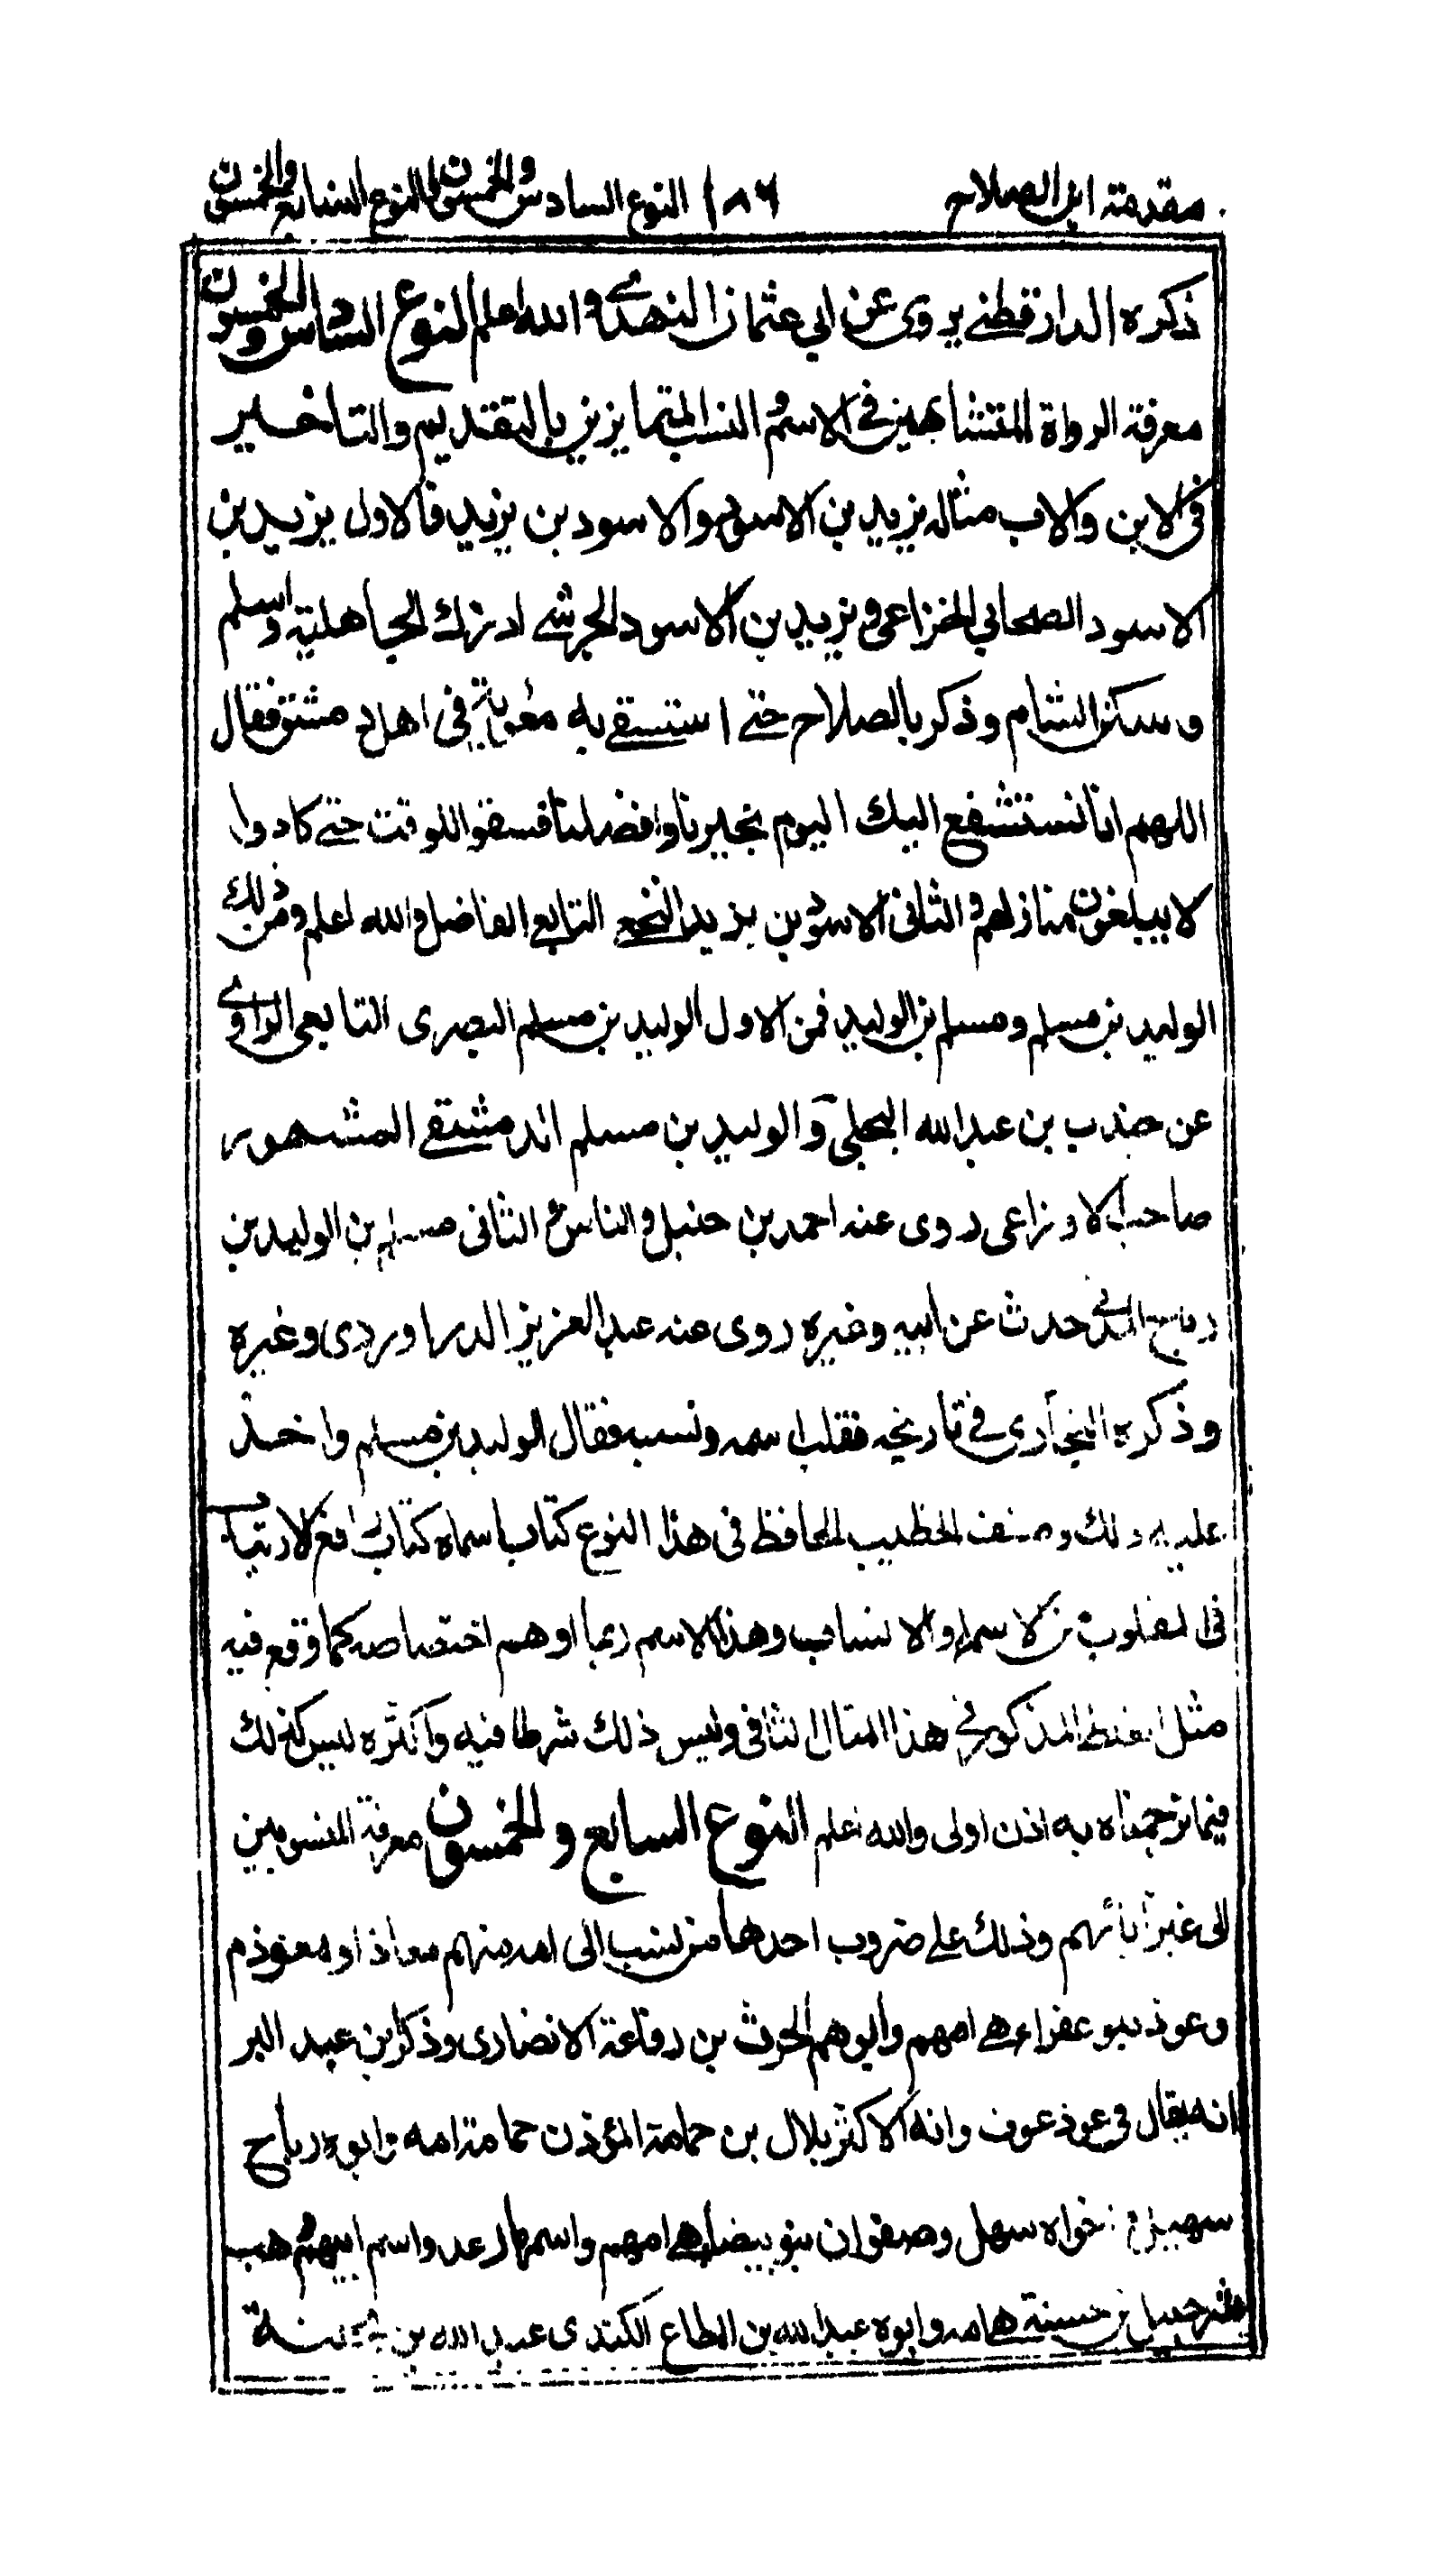 مقدمة ابن الصلاح ١٨٦ النوع السادس والخمسون النوع السابع والخمسون
ذكره الدارقطني يروى عن ابي عثمان النهدي والله اعلم النوع السادس والخمسون
معرفة الرواة المتشابهين في الاسم والنسب المتمايزين بالتقديم والتاخير
في الابن والاب مثاله يزيد بن الاسود والاسود بن يزيد فالاول يزيد بن
الاسود الصحابي الخزاعي ويزيد بن الاسود الجرشي ادرك الجاهلية واسلم
وسكن الشام وذكر بالصلاح حتى استسقى به معوية في اهل دمشق فقال
اللهم انا نستشفع اليك اليوم بخيرنا وافضلنا فسقوا للوقت حتى كادوا
لا يبلغون منازلهم والثاني الاسود بن يزيد النخعي التابعي الفاضل والله اعلم ومن ذلك
الوليد بن مسلم ومسلم بن الوليد فمن الاول الوليد بن مسلم البصرى التابعي الراوي
عن جندب بن عبد الله البجلي والوليد بن مسلم الدمشقي المشهور
صاحب الاوزاعي روى عنه احمد بن حنبل والناس والثاني مسلم بن الوليد بن
رباح المدني حدث عن ابيه وغيره روى عنه عبد العزيز الدراوردي وغيره
وذكره البخاري في تاريخه فقلب اسمه ونسبه فقال الوليد بن مسلم واخذ
عليه ذلك وصنف الخطيب الحافظ في هذا النوع كتابا سماه كتاب رافع الارتياب
في المقلوب من الاسماء والانساب وهذا الاسم ربما اوهم اختصاصه كما وقع فيه
مثل الغلط المذكور في هذا المثال الثاني وليس ذلك شرطا فيه واكثره ليس كذلك
فيما ترجمناه به اذن اولى والله اعلم النوع السابع والخمسون معرفة المنسوبين
الى غير آبائهم وذلك على ضروب احدها من نسب الى امه منهم معاذ ومعوذ
وعوذ بنو عفراء هي امهم وابوهم الحرث بن رفاعة الانصارى وذكر ابن عبد البر
انه يقال في عوذ عوف وانه الاكثر بلال بن حمامة المؤذن حمامة امه وابوه رباح
سهيل واخواه سهل وصفوان بنو بيضاء هي امهم واسمها دعد واسم ابيهم وهب
شرحبيل بن حسنة هي امه وابوه عبد الله بن المطاع الكندى عبد الله بن بحينة